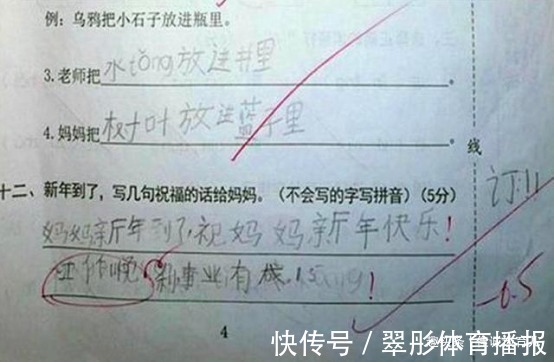 例：乌鸦把小石子放进瓶里。
3.老师把水tǒng放进井里。
4.妈妈把树叶放进蓝子里。
线
十二、新年到了，写几句祝福的话给妈妈。（不会写的字写拼音）(5分)
订
妈妈新年到了,祝妈妈新年快乐！
工作 事业有成！
-0.5
4
快传号／翠彤体育播报